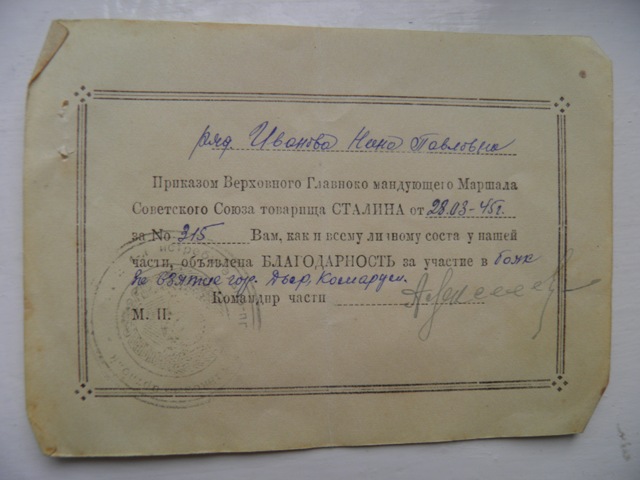 ряд. Иванова Нина Павловна
Приказом Верховного Главноко мандующего Маршала
Советского Союза товарища СТАЛИНА от 28.03-45г.
за No 315 Вам, как и всему личному соста у нашей
части, объявлена БЛАГОДАРНОСТЬ за участие в боях
по взятию гор. Дьер, Комаром.
Командир части
М. П.